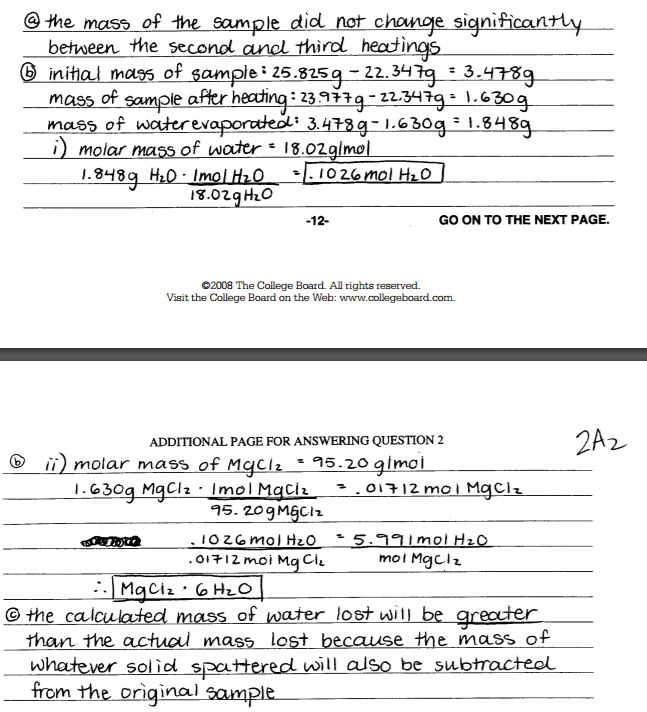 ⓐ the mass of the sample did not change significantly
between the second and third heatings
ⓑ initial mass of sample: 25.825g - 22.347g = 3.478g
mass of sample after heating: 23.977g - 22.347g = 1.630g
mass of water evaporated: 3.478g - 1.630g = 1.848g
i) molar mass of water = 18.02g/mol
1.848g H₂O · 1mol H₂O = .1026 mol H₂O
18.02g H₂O
-12- GO ON TO THE NEXT PAGE.
©2008 The College Board. All rights reserved.
Visit the College Board on the Web: www.collegeboard.com.
ADDITIONAL PAGE FOR ANSWERING QUESTION 2 2A2
ⓑ ii) molar mass of MgCl₂ = 95.20 g/mol
1.630g MgCl₂ · 1mol MgCl₂ = .01712 mol MgCl₂
95.20g MgCl₂
.1026 mol H₂O = 5.991 mol H₂O
.01712 mol MgCl₂ mol MgCl₂
∴ MgCl₂ · 6 H₂O
ⓒ the calculated mass of water lost will be greater
than the actual mass lost because the mass of
whatever solid spattered will also be subtracted
from the original sample